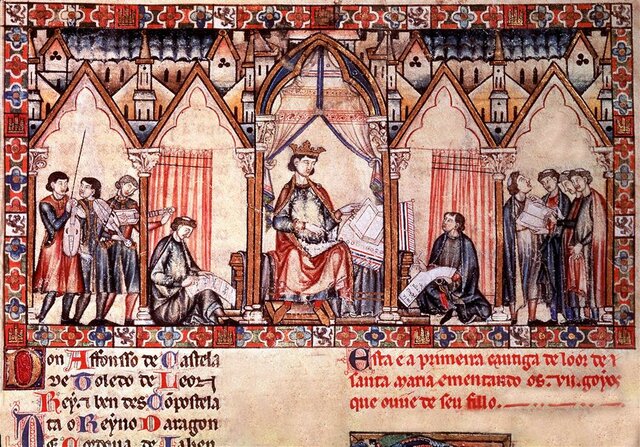 Don Affonsso de Castela
de Toledo de Leon
Rey ⁊ ben des Cõpostela
Ta o Reyno Daragon
De Cordoua de Jahen
Esta e a primeira cantiga de loor de
santa maria ementando os .vij. goyos
que ouue de seu fillo.